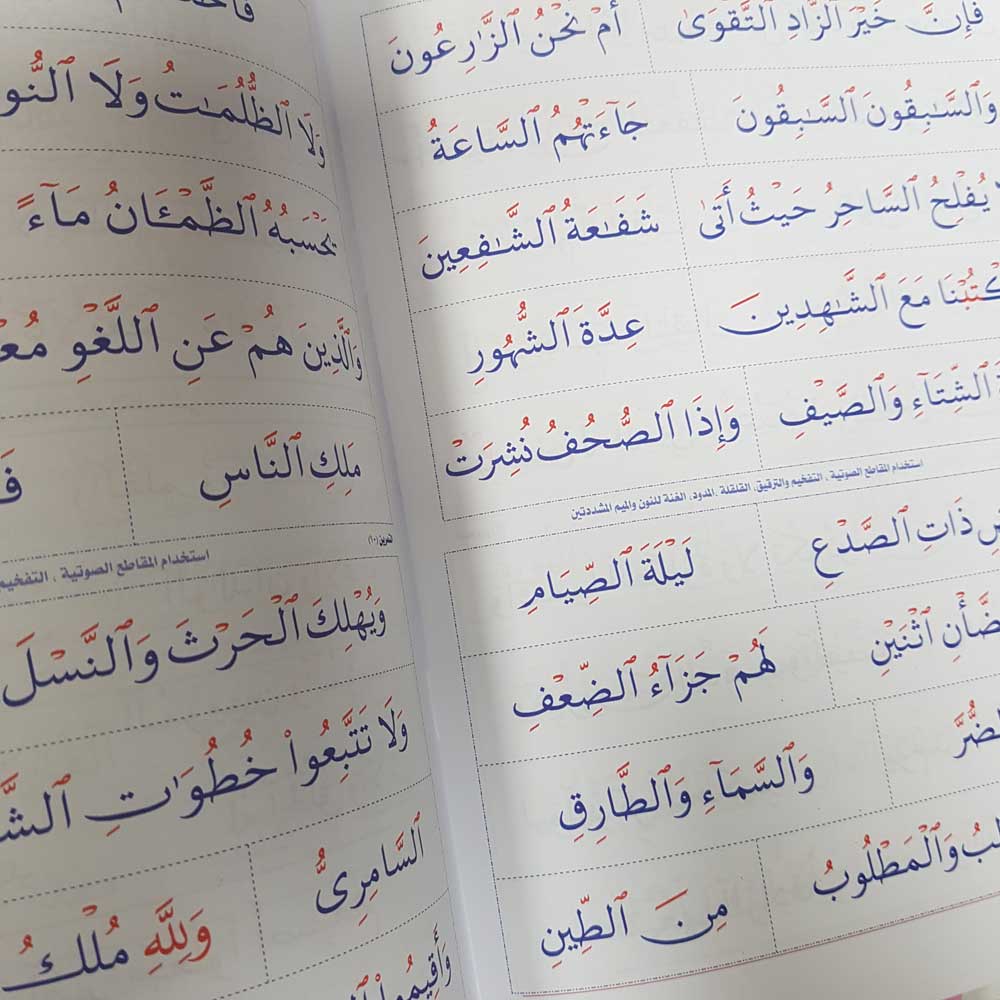 فَإِنَّ خَيْرَ الزَّادِ التَّقْوَىٰ
أَمْ نَحْنُ ٱلزَّٰرِعُونَ
وَالسَّـٰبِقُونَ ٱلسَّـٰبِقُونَ
جَآءَتْهُمُ ٱلسَّاعَةُ
يُفْلِحُ ٱلسَّاحِرُ حَيْثُ أَتَىٰ
شَفَـٰعَةُ ٱلشَّـٰفِعِينَ
مَعَ ٱلشَّـٰهِدِينَ
عِدَّةَ ٱلشُّهُورِ
ٱلشِّتَآءِ وَٱلصَّيْفِ
وَإِذَا ٱلصُّحُفُ نُشِرَتْ
استخدام المقاطع الصوتية ، التفخيم والترقيق، القلقلة ،المدود، الغنة للنون والميم المشددتين
ذَاتِ ٱلصَّدْعِ
لَيْلَةَ ٱلصِّيَامِ
ٱثْنَيْنِ
لَهُمْ جَزَآءُ ٱلضِّعْفِ
وَٱلسَّمَآءِ وَٱلطَّارِقِ
وَٱلْمَطْلُوبُ
مِنَ ٱلطِّينِ
وَلَا ٱلظُّلُمَـٰتُ وَلَا
يَحْسَبُهُ ٱلظَّمْـَٔانُ مَآءً
وَٱلَّذِينَ هُمْ عَنِ ٱللَّغْوِ
مَلِكِ ٱلنَّاسِ
تمرين (١٠)
استخدام المقاطع الصوتية ،
وَيُهْلِكَ ٱلْحَرْثَ وَٱلنَّسْلَ
وَلَا تَتَّبِعُوا۟ خُطُوَٰتِ
ٱلسَّامِرِىُّ
وَلِلَّهِ مُلْكُ